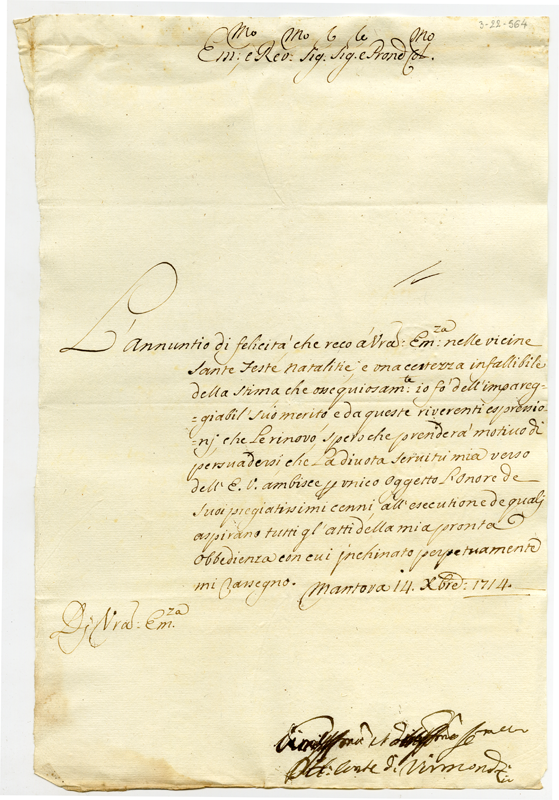 3-22-564
Em:mo e Rev:mo Sig: Sig: e Prond Col:mo
L'Annuntio di felicità che reco à Vra: Em:za nelle vicine
Sante Feste Natalitie è una certezza infallibile
della stima che ossequiosam:te io fò dell'impareg=
=giabil Suo merito e da queste riverenti espressio=
=nj, che Le rinovo, spero che prenderà motivo di
persuadersi, che La divota Servitù mia verso
dell'E.V. ambisce p unico oggetto L'onore de
Suoi pregiatissimi cenni, all'esecutione de qualj
aspirano tutti gl'atti della mia pronta
Obbedienza con cui jnchinato perpetuamente
mi rassegno. Mantova 14. Xbre: 1714.
Dj Vra: Em:za
et
Conte di Virmond